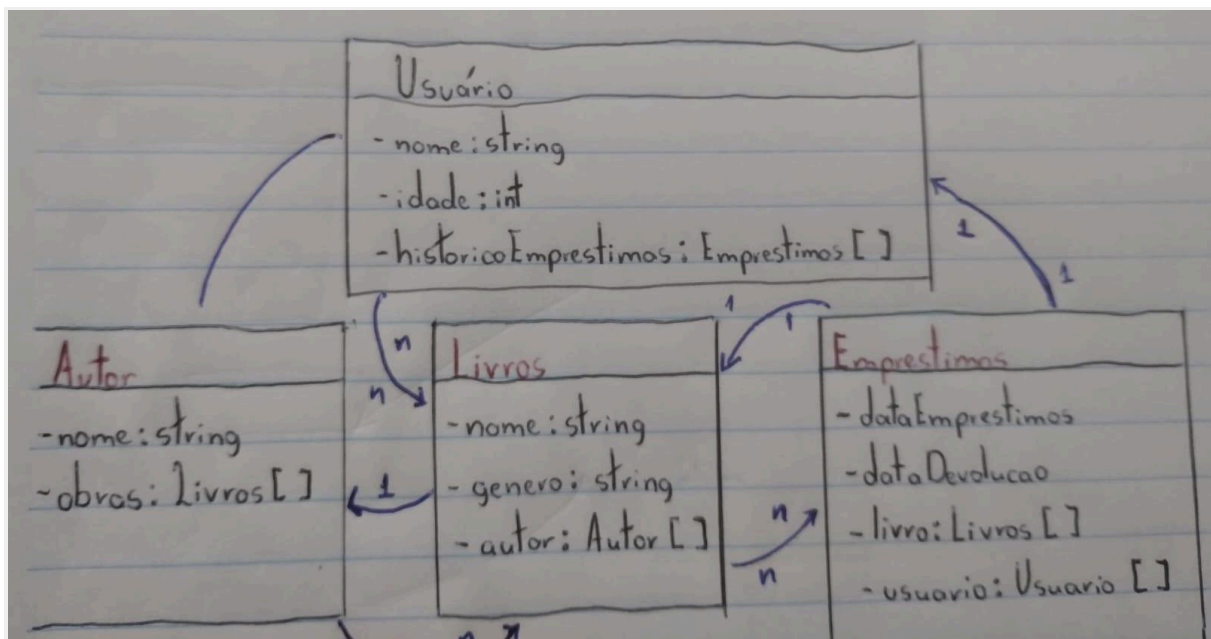 Usuário
-nome:string
-idade:int
-historicoEmprestimos:Emprestimos[]
1
1
n
n
Autor
-nome:string
-obras:Livros[]
1
Livros
-nome:string
-genero:string
-autor:Autor[]
1
1
n
n
Emprestimos
-dataEmprestimos
-dataDevolucao
-livro:Livros[]
-usuario:Usuario[]
n